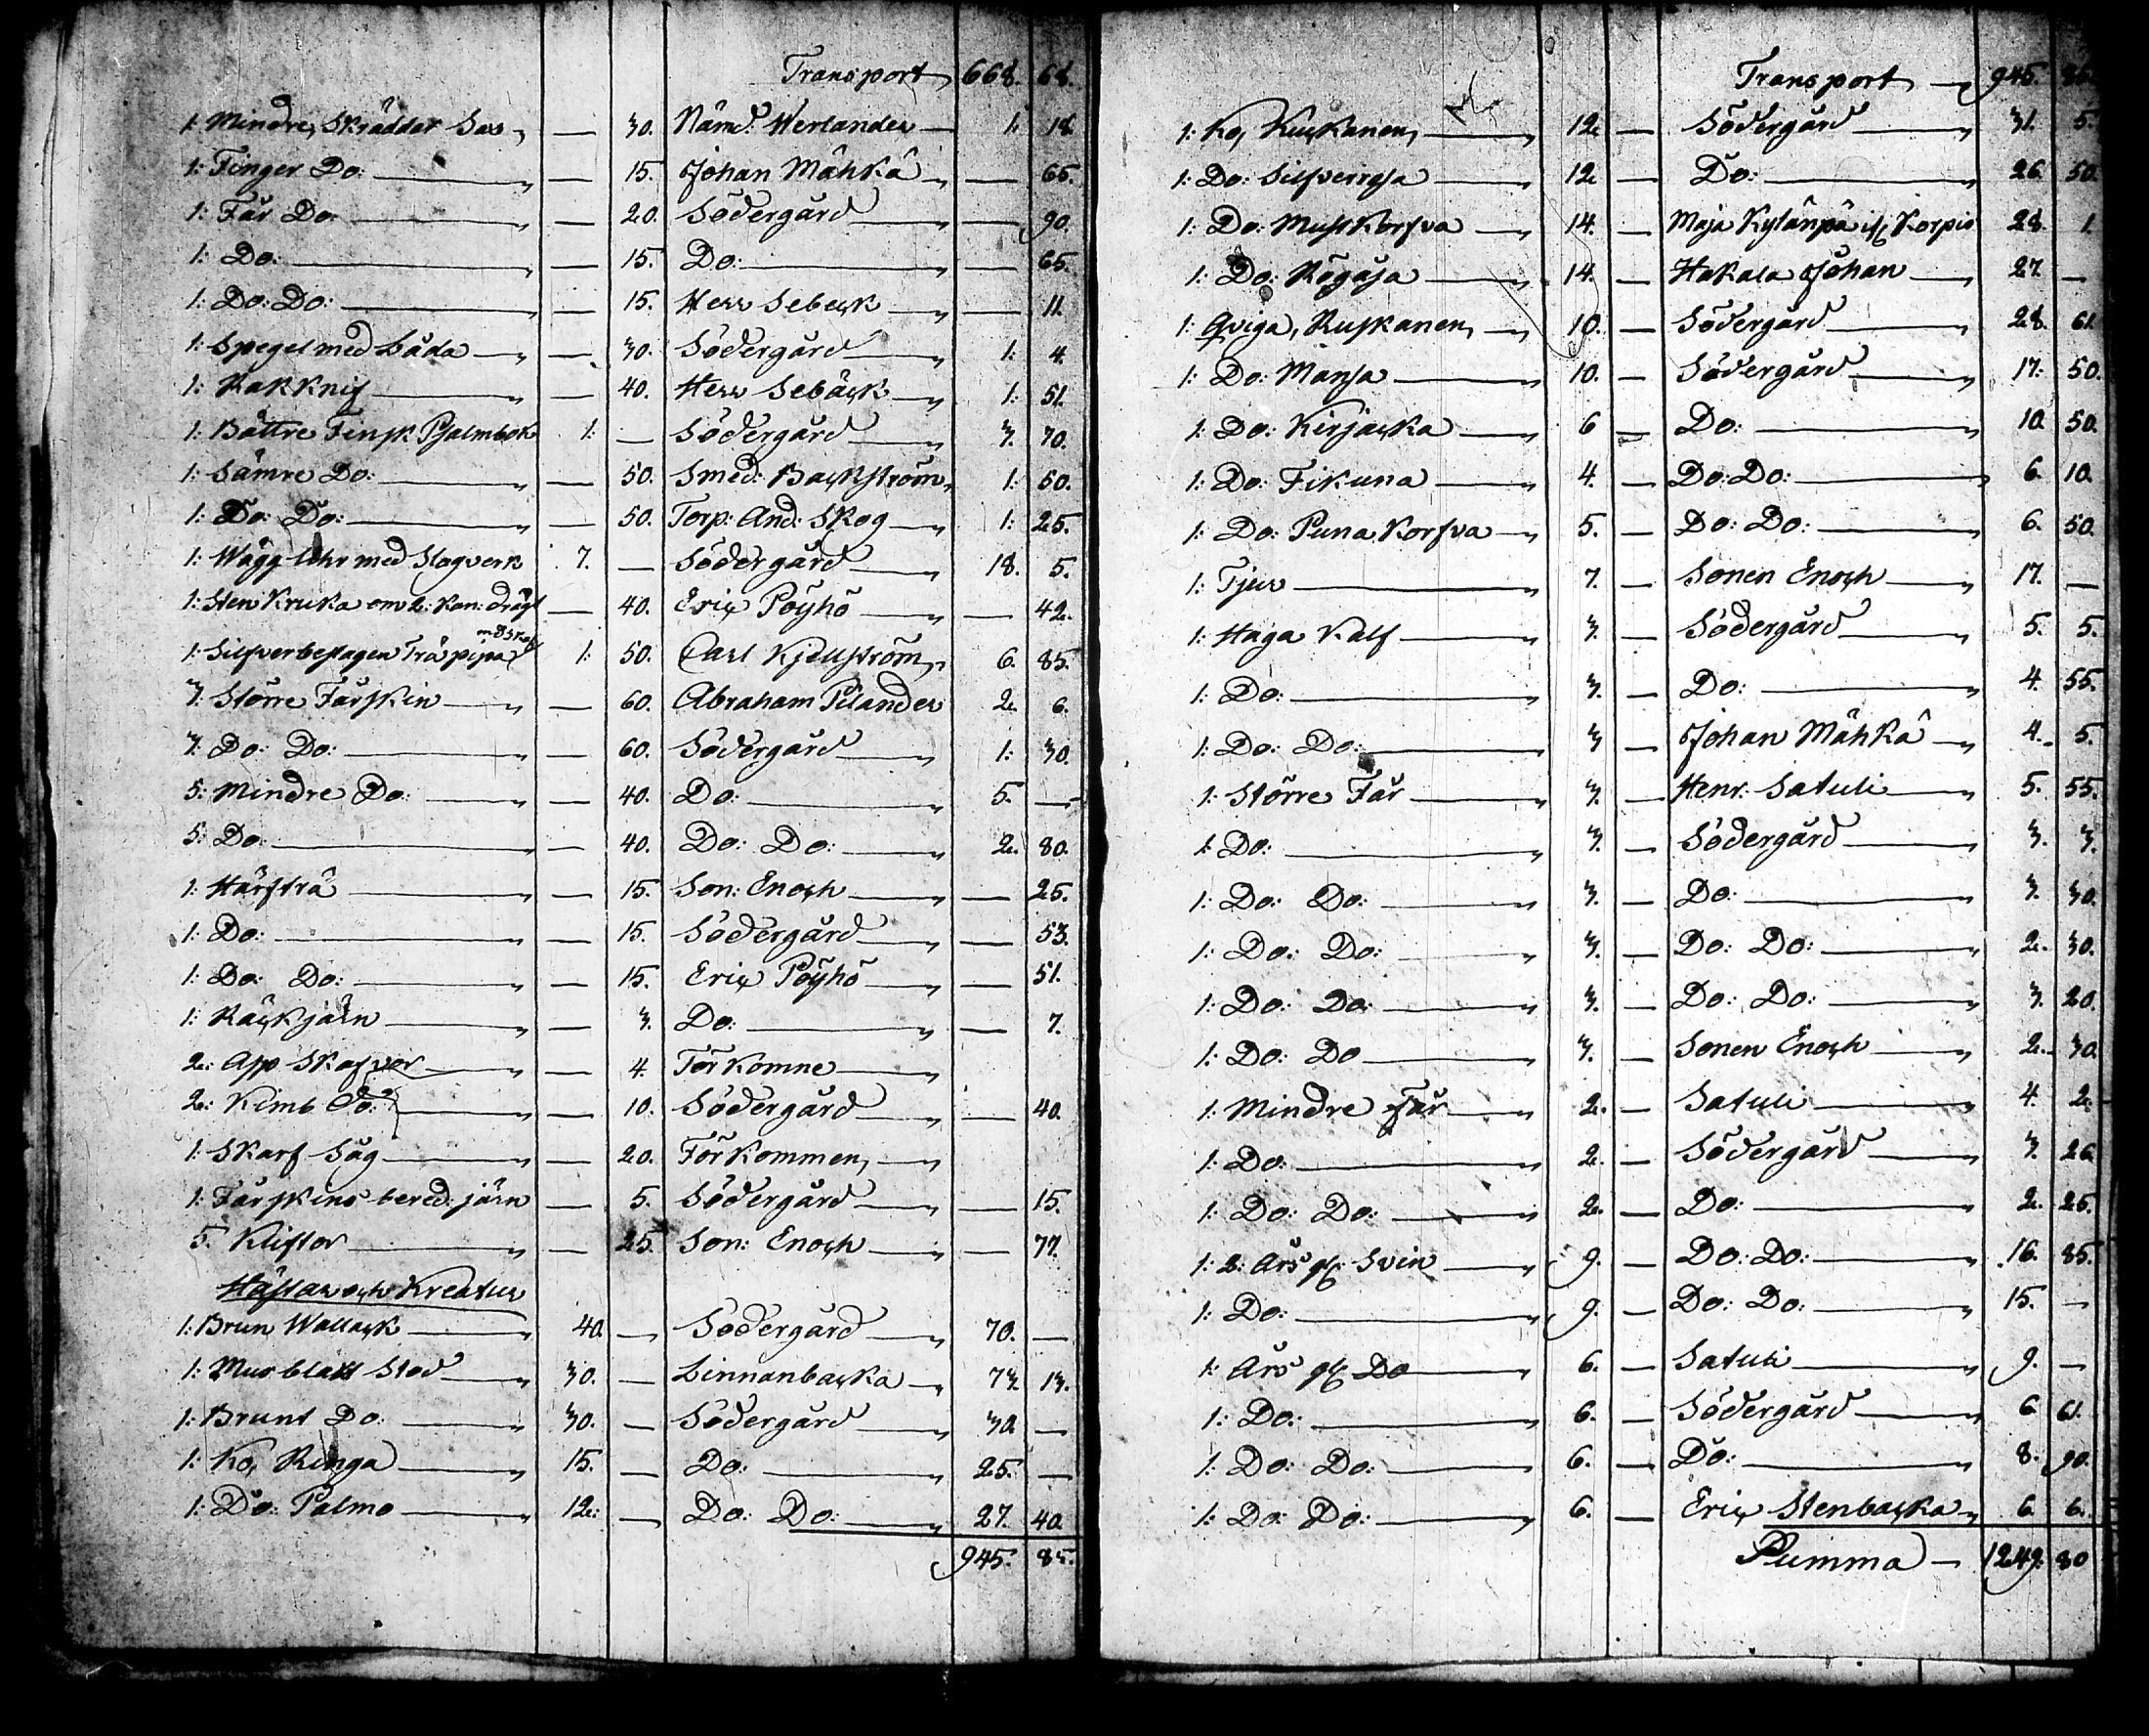 Transport 668. 68.
1: Mindre Skräddar Sax — 30. Nämd: Werlander — 1: 18.
1: Finger Do: — 15. Johan Mähkä — 65.
1: Får Do: — 20. Södergård — 90.
1: Do: — 15. Do: — 65.
1: Do: Do: — 15. Herr Sebeck — 11.
1: Spegel med Låda — 30. Södergård — 1: 4.
1: Rakknif — 40. Herr Sebäck — 1: 51.
1: Bättre Finsk Psalmbok 1: — Södergård — 3. 70.
1: Sämre Do: — 50. Smed: Backström 1: 50.
1: Do: Do: — 50. Torp: And: Skog — 1: 25.
1: Wägg Uhr med Slagverk 7. — Södergård — 18. 5.
1: Sten Kruka om 2: Kan: drägt — 40. Eric Pöyhö — 42.
1: Silfverbeslagen Träpipa 1: 50. Carl Kjellström 6. 85.
3: Större Fårskin — 60. Abraham Pilander 2. 6.
3: Do: Do: — 60. Södergård — 1: 30.
5: Mindre Do: — 40. Do: — 5. —
5: Do: — 40. Do: Do: — 2. 80.
1: Härfträ — 15. Son: Enoch — 25.
1: Do: — 15. Södergård — 53.
1: Do: Do: — 15. Eric Pöyhö — 51.
1: Räckjärn — 3. Do: — 7.
2: App Skafvor — 4. Förkomne —
2: Kimb Do: — 10. Södergård — 40.
1: Skarf Såg — 20. Förkommen —
1: Fårskins bered: järn — 5. Södergård — 15.
5. Kliftor — 25. Son: Enoch — 77.
Hästar och Kreatur
1: Brun Wallack — 40. — Södergård — 70. —
1: Musblakt Stod — 30. — Linnanbacka — 73. 13.
1: Brunt Do: — 30. — Södergård — 30. —
1: Ko, Ringa — 15. — Do: — 25. —
1: Do: Palmo — 12: — Do: Do: — 27. 40.
945. 85.
Transport — 945. 85.
1: Ko, Kuckanen — 12. — Södergård — 31. 5.
1: Do: Silfverrysa — 12. — Do: — 26. 50.
1: Do: Mustkorfva — 14. — Maja Kylänpä if. Korpis 28. 1.
1: Do: Rögåsa — 14. — Hakala Johan — 27. —
1: Qviga, Ruskanen — 10. — Södergård — 28. 61.
1: Do: Mansa — 10. — Södergård — 17. 50.
1: Do: Kirjacka — 6 — Do: — 10. 50.
1: Do: Fikuna — 4. — Do: Do: — 6. 10.
1: Do: Puna Korfva — 5. — Do: Do: — 6. 50.
1: Tjur — 7. — Sonen Enoch — 17. —
1: Haga Kalf — 3. — Södergård — 5. 5.
1: Do: — 3. — Do: — 4. 55.
1: Do: Do: — 3 — Johan Mähkä — 4. 5.
1: Större Får — 3. — Henr: Satuli — 5. 55.
1: Do: — 3. — Södergård — 3. 3.
1: Do: Do: — 3. — Do: — 3. 30.
1: Do: Do: — 3. — Do: Do: — 2. 30.
1: Do: Do: — 3. — Do: Do: — 3. 20.
1: Do: Do — 3. — Sonen Enoch — 2. 30.
1: Mindre Får — 2. — Satuli — 4. 2.
1: Do: — 2. — Södergård — 3. 26.
1: Do: Do: — 2. — Do: — 2. 25.
1: 2: Års gl: Svin — 9. — Do: Do: — 16. 85.
1: Do: — 9. — Do: Do: — 15. —
1: Års gl: Do — 6. — Satuli — 9. —
1: Do: — 6. — Södergård — 6. 61.
1: Do: Do: — 6. — Do: — 8. 90.
1: Do: Do: — 6. — Eric Stenbacka 6. 6.
Summa — 1249. 80